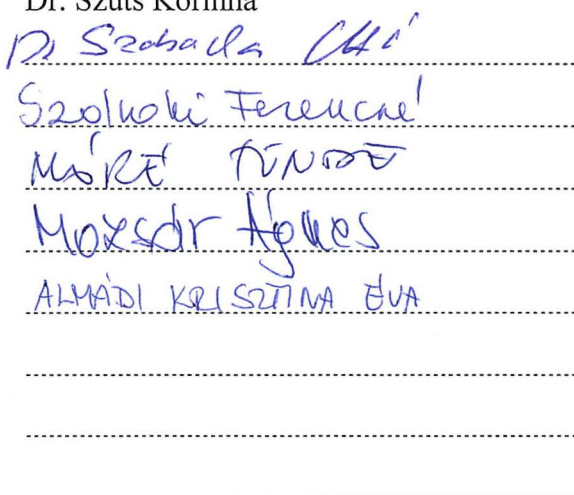 Dr. Szűts Korinna
Dr Szabados
Szolnoki Ferencné
MÓRÉ TÜNDE
Mozsár Ágnes
ALMÁDI KRISZTINA ÉVA